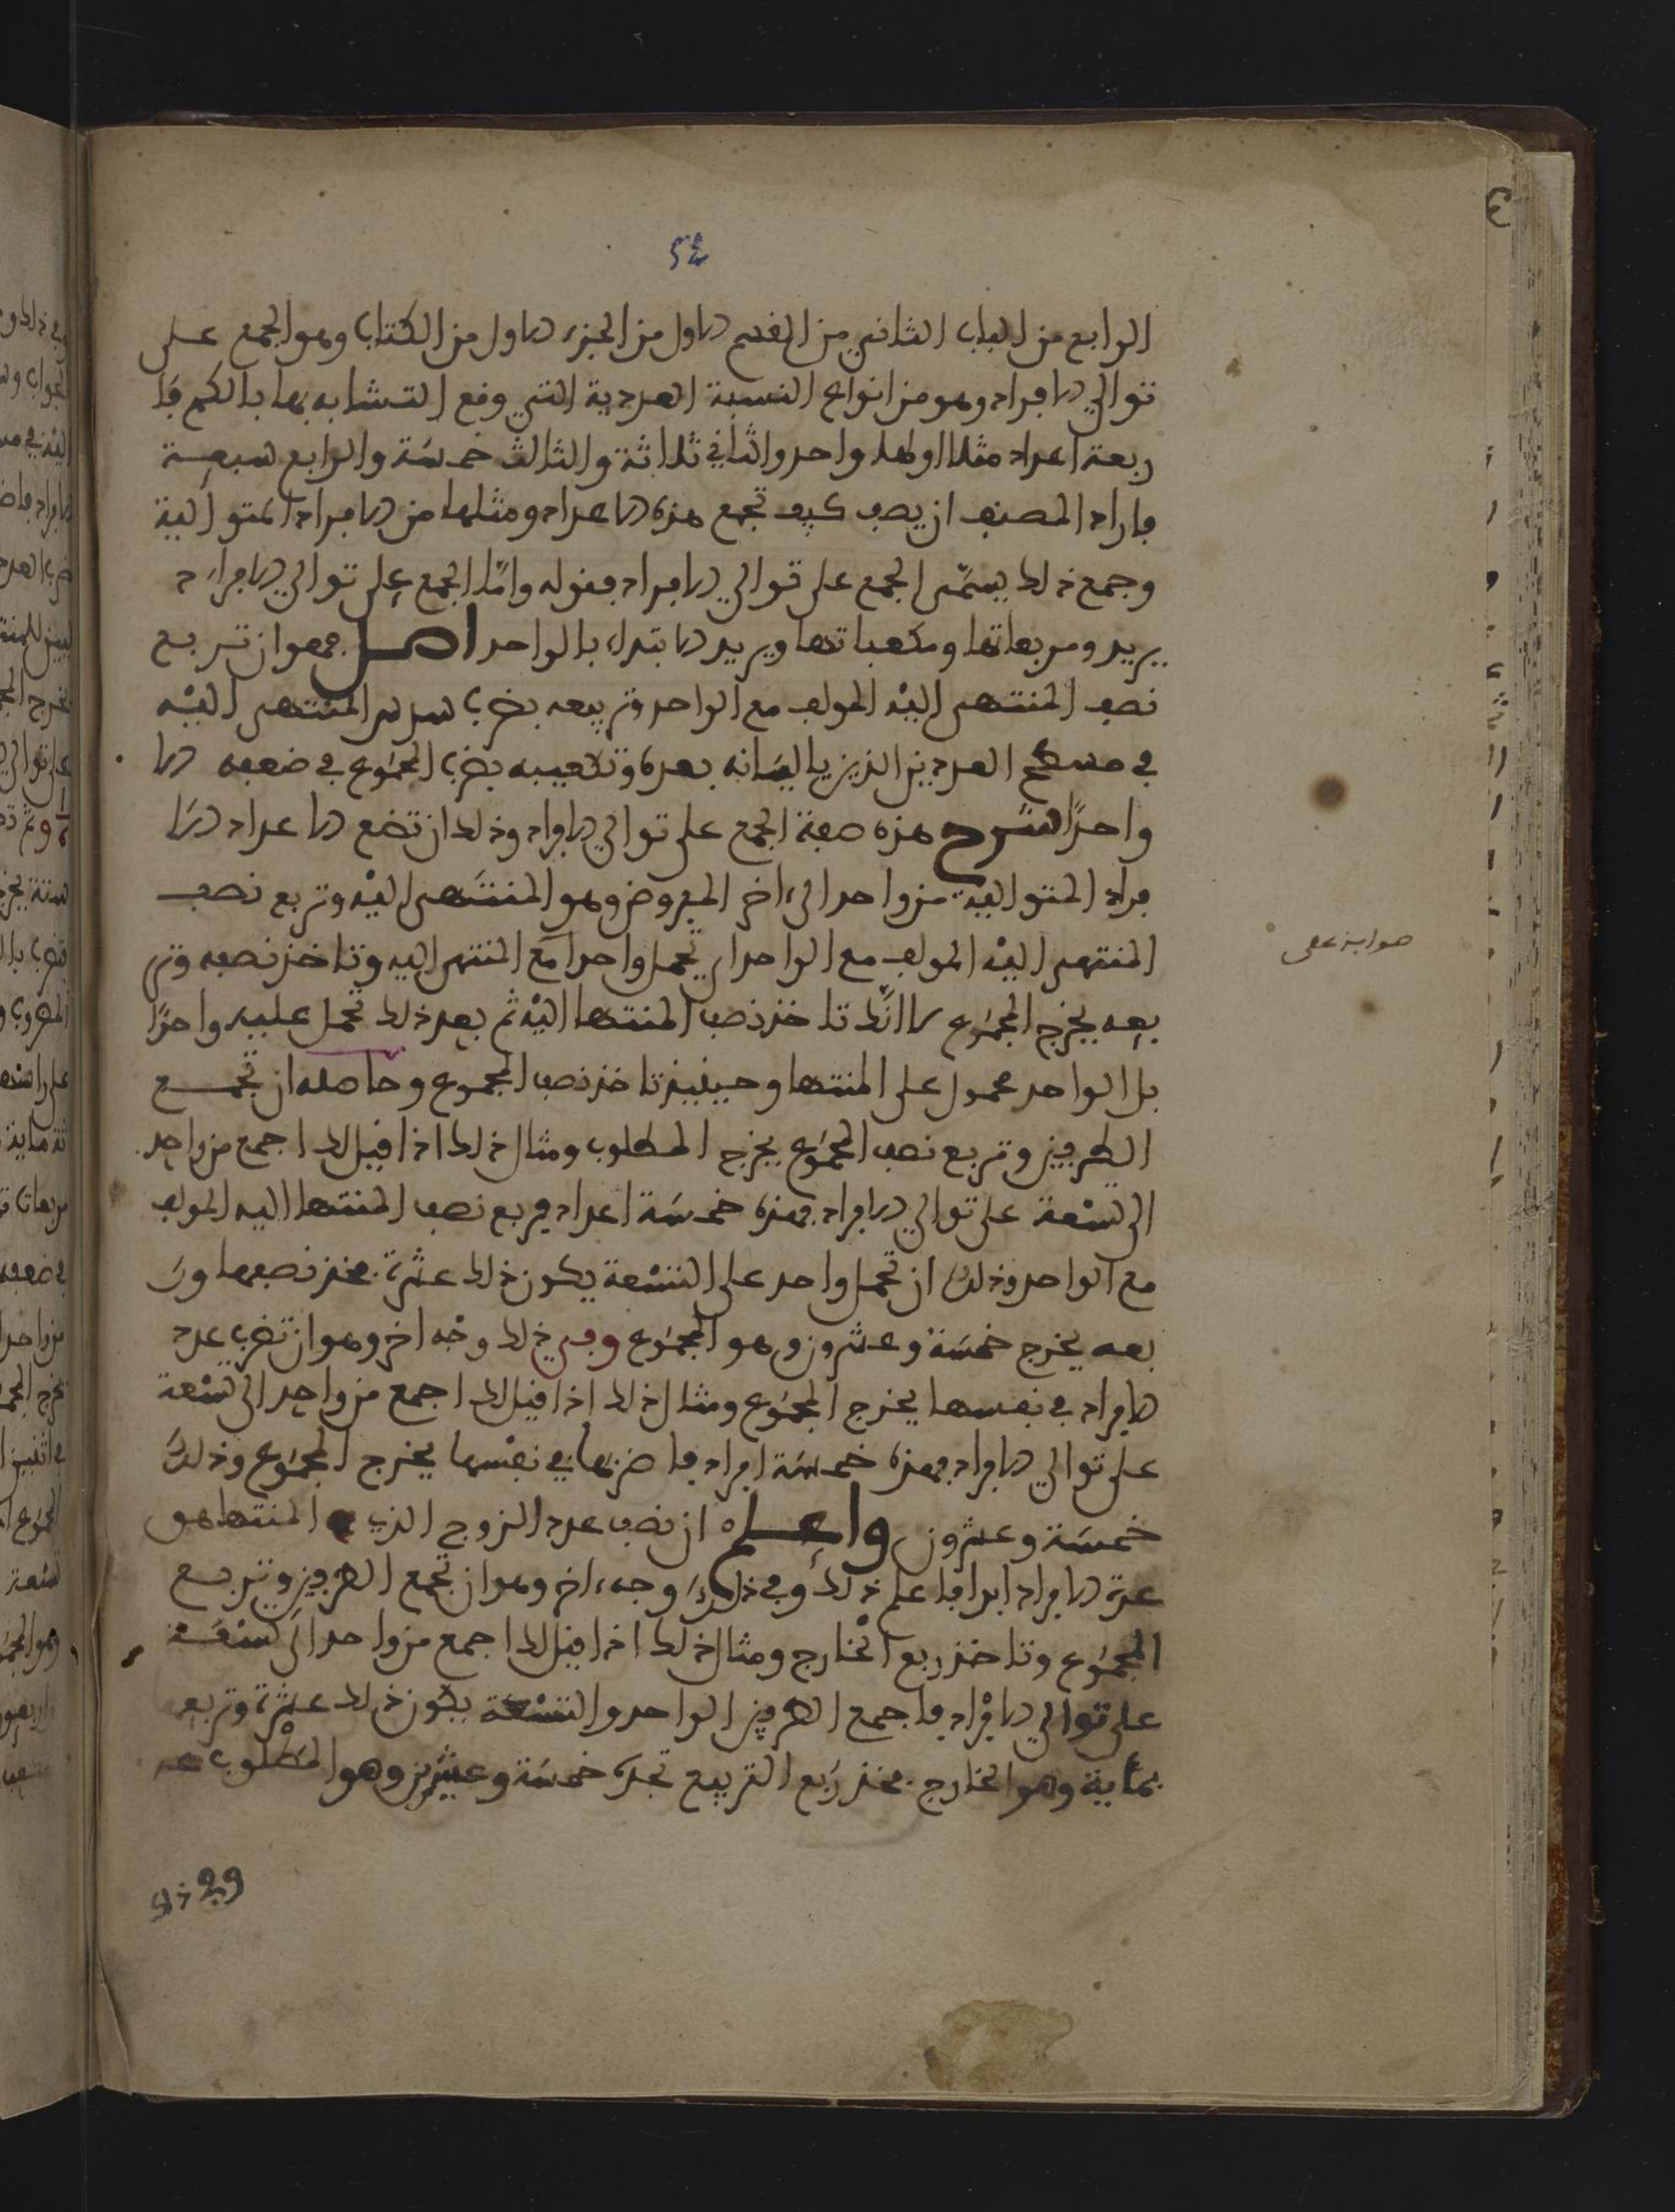 54
الرابع من الباب الثاني من القسم الاول من الجزء الاول من الكتاب وهو الجمع على
توالي الافراد وهو من انواع النسبة العددية التي وقع التشابه بها بالكم فا
ربعة اعداد مثلا اولها واحد والثاني ثلاثة والثالث خمسة والرابع سبعة
فاراد المصنف ان يصف كيف تجمع هذه الاعداد ومثلها من الافراد المتوالية
وجمع ذلك يسمى الجمع على توالي الافراد فقوله وامّا الجمع على توالي الافراد
يريد ومربعاتها ومكعباتها ويريد الابتداء بالواحد اصل فهو ان تربع
نصف المنتهى اليْه المولف مع الواحد وتربيعه بضرب سدس المنتهى اليْه
في مسطح العددين الذين ياليانه بعده وتكعيبه بضرب المجموع في ضعفه الا
واحدًا شرح هذه صفة الجمع على توالي الافراد وذلك ان تضع الاعداد الا
فراد المتوالية من واحد الى ءاخر المفروض وهو المنتهى اليْه وتربع نصف
المنتهى اليْه المولف مع الواحد اي تحمل واحدا مع المنتهى اليه وتاخذ نصفه وتر
بعه يخرج المجموع لا انّك تاخذ نصف المنتها اليْه ثم بعد ذلك تحمل عليه واحدًا
بل الواحد محمول على المنتها وحينيذ تاخذ نصف المجموع وحاصله ان تجمع
الطرفين وتربع نصف المجموع يخرج المطلوب ومثال ذلك اذا قيل لك اجمع من واحد
الى تسْعة على توالي الافراد فهذه خمسة اعداد فربع نصف المنتها اليه المولف
مع الواحد وذلك ان تحمل واحد على التسْعة يكون ذلك عشرة فخذ نصفها ور
بعه يخرج خمسة وعشرون وهو المجموع وفي ذلك وجْه اخر وهو ان تضرب عدد
الافراد في نفسها يخرج المجموع ومثال ذلك اذا قيل لك اجمع من واحد الى تسْعة
على توالي الافراد فهذه خمسة افراد فاضربها في نفسها يخرج المجموع وذلك
خمسة وعشرون واعلم ان نصف عدد الزوج الذي المنتها هو
عدة الافراد ابدا فاعلم ذلك وفي ذلك وجه ءاخر وهو ان تجمع الطرفين وتربع
المجموع وتاخذ ربع الخارج ومثال ذلك اذا قيل لك اجمع من واحد الى تسْعة
على توالي الافراد فاجمع الطرفين الواحد والتسْعة يكون ذلك عشرة وتربعه
بماية وهو الخارج فخذ ربع التربيع تجده خمسة وعشرين وهو المطلوب
صوابه على